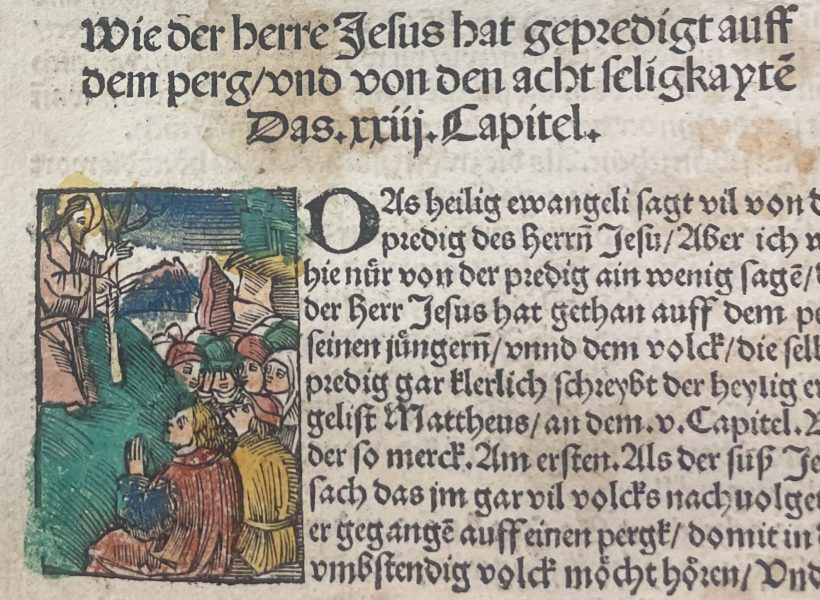 Wie der herre Jesus hat gepredigt auff
dem perg/vnd von den acht seligkaytē
Das.xxiij.Capitel.
DAs heilig ewangeli sagt vil von d
predig des Herrn̄ Jesu/Aber ich
hie nůr von der predig ain wenig sagē/
der Herr Jesus hat gethan auff dem pe
seinen jüngern̄/vnnd dem volck/die selb
predig gar klerlich schreybt der heylig e
gelist Mattheus/an dem.v.Capitel.
der so merck.Am ersten.Als der süß Je
sach das jm gar vil volcks nachuolget
er gegangē auff einen pergk/domit in
vmbstendig volck möcht hören/Vnd